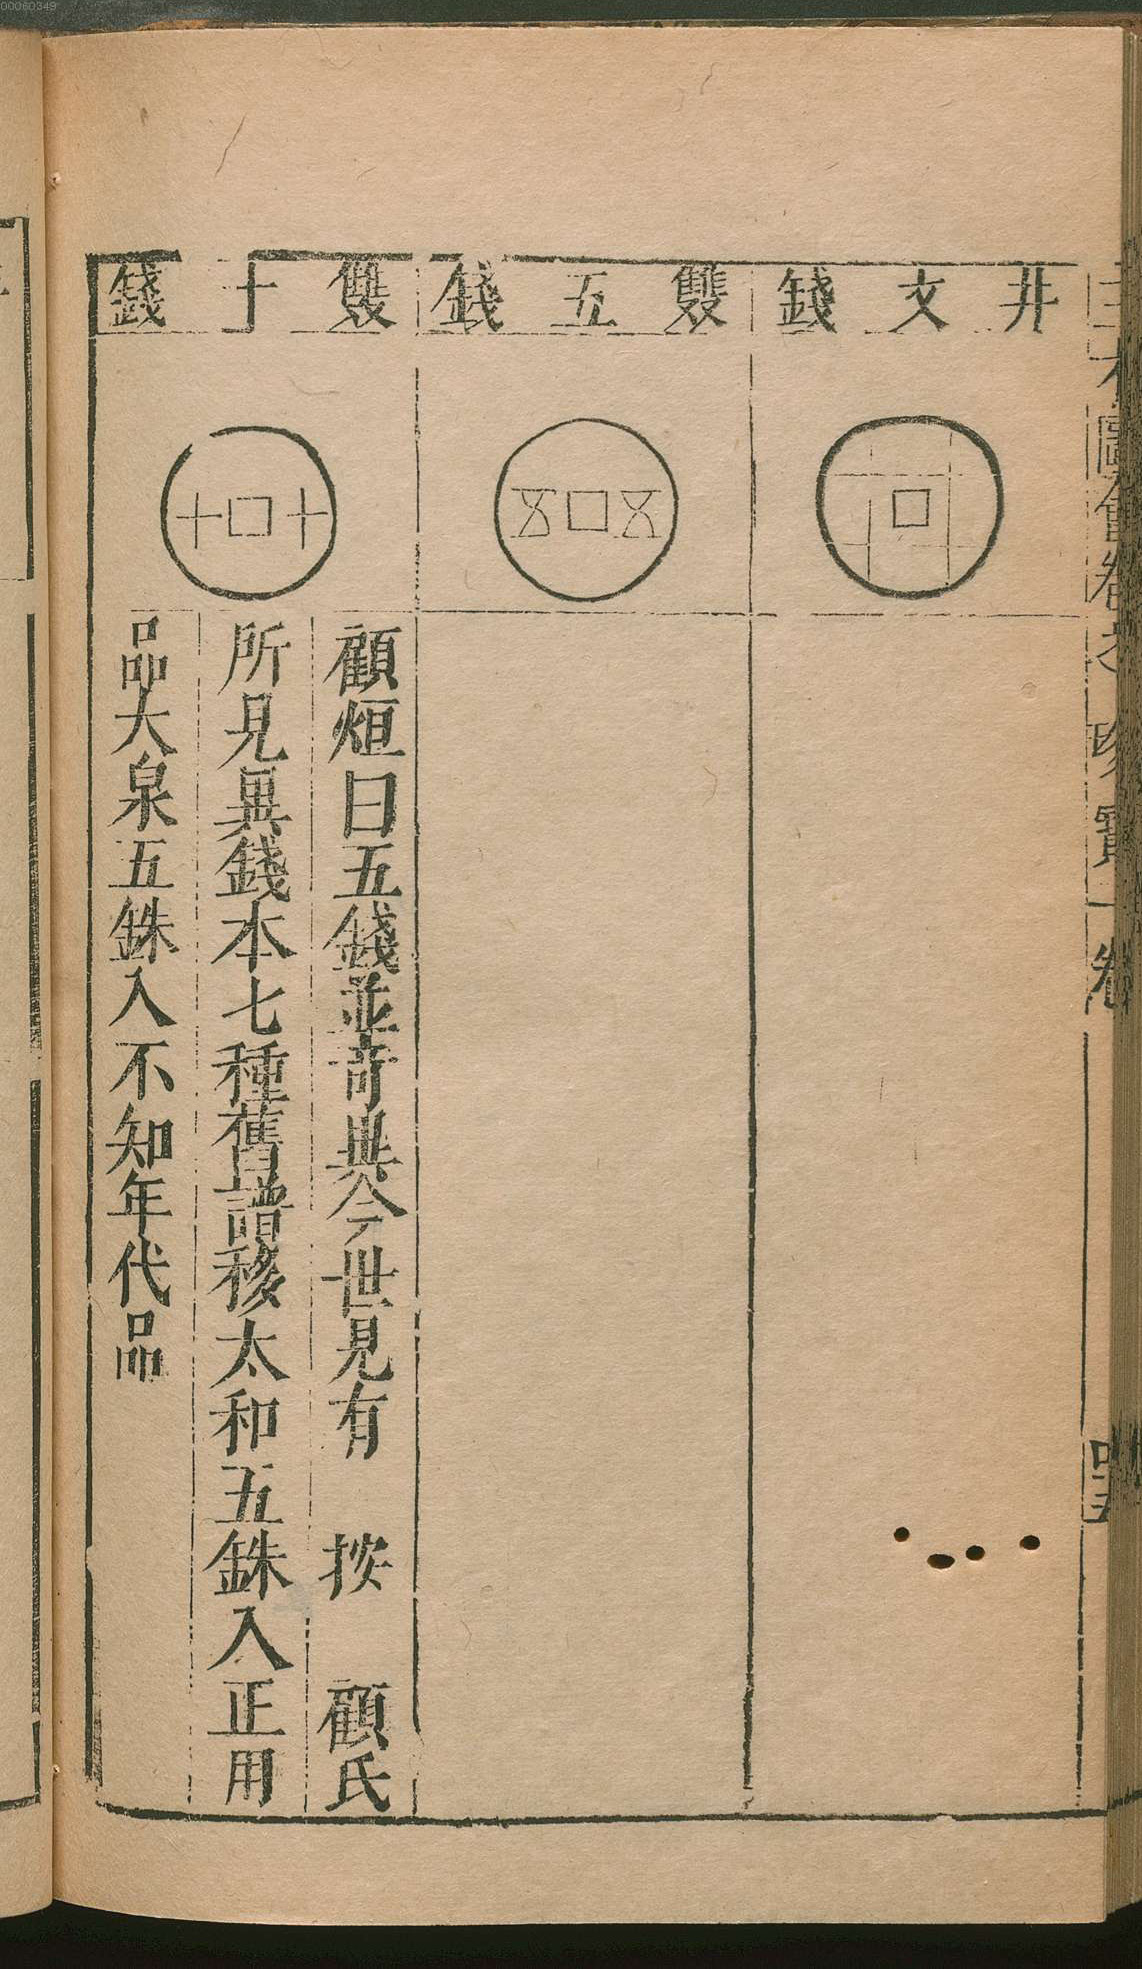 井文錢
雙五錢
雙十錢
顧烜曰五錢並竒異今世見有 按 顧氏
所見異錢本七種舊譜移太和五銖入正用
品大泉五銖入不知年代品
00060349